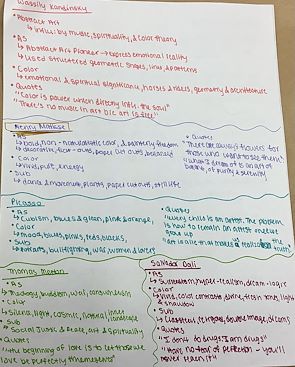 Wassily Kandinsky
Abstract Art
↳ influ. by music, spirituality, & color theory
AS
↳ Abstract Art Pioneer → express emotional reality
↳ used structured geometric shapes, lines, & patterns
Color
↳ emotional & spiritual significance, horses & riders, geometry & architecture
Quotes
"Color is power which directly influ. the soul"
"There's no music in art b/c art is free"
Henry Matisse
AS
↳ bold, non-naturalistic color, & painterly freedom
Color
↳ vivid, pure, energy
Sub
↳ dance & movement, plants, paper cut outs, still life
Quotes
"There are always flowers for
those who want to see them."
"what I dream of is an art of
balance, of purity & serenity
Picasso
AS
↳ cubism, blues & green, pink & orange,
Color
↳ mood, blues, pinks, reds, blacks
Sub
↳ portraits, bullfighting, war, women & lovers
Quotes
"every child is an artist. The problem
is how to remain an artist once we
grow up
Art is a lie that makes us realize the truth
Thomas Merton
AS
Color
Sub
↳ Social Justice & Peace, art & spirituality
Quotes
"the beginning of love is to let those we
love be perfectly themselves"
Salvador Dali
AS
↳ Surrealism, hyper-realism, dream-logic
Color
Sub
Quotes
"I don't do drugs. I am drugs"
"Have no fear of perfection - you'll
never reach it"